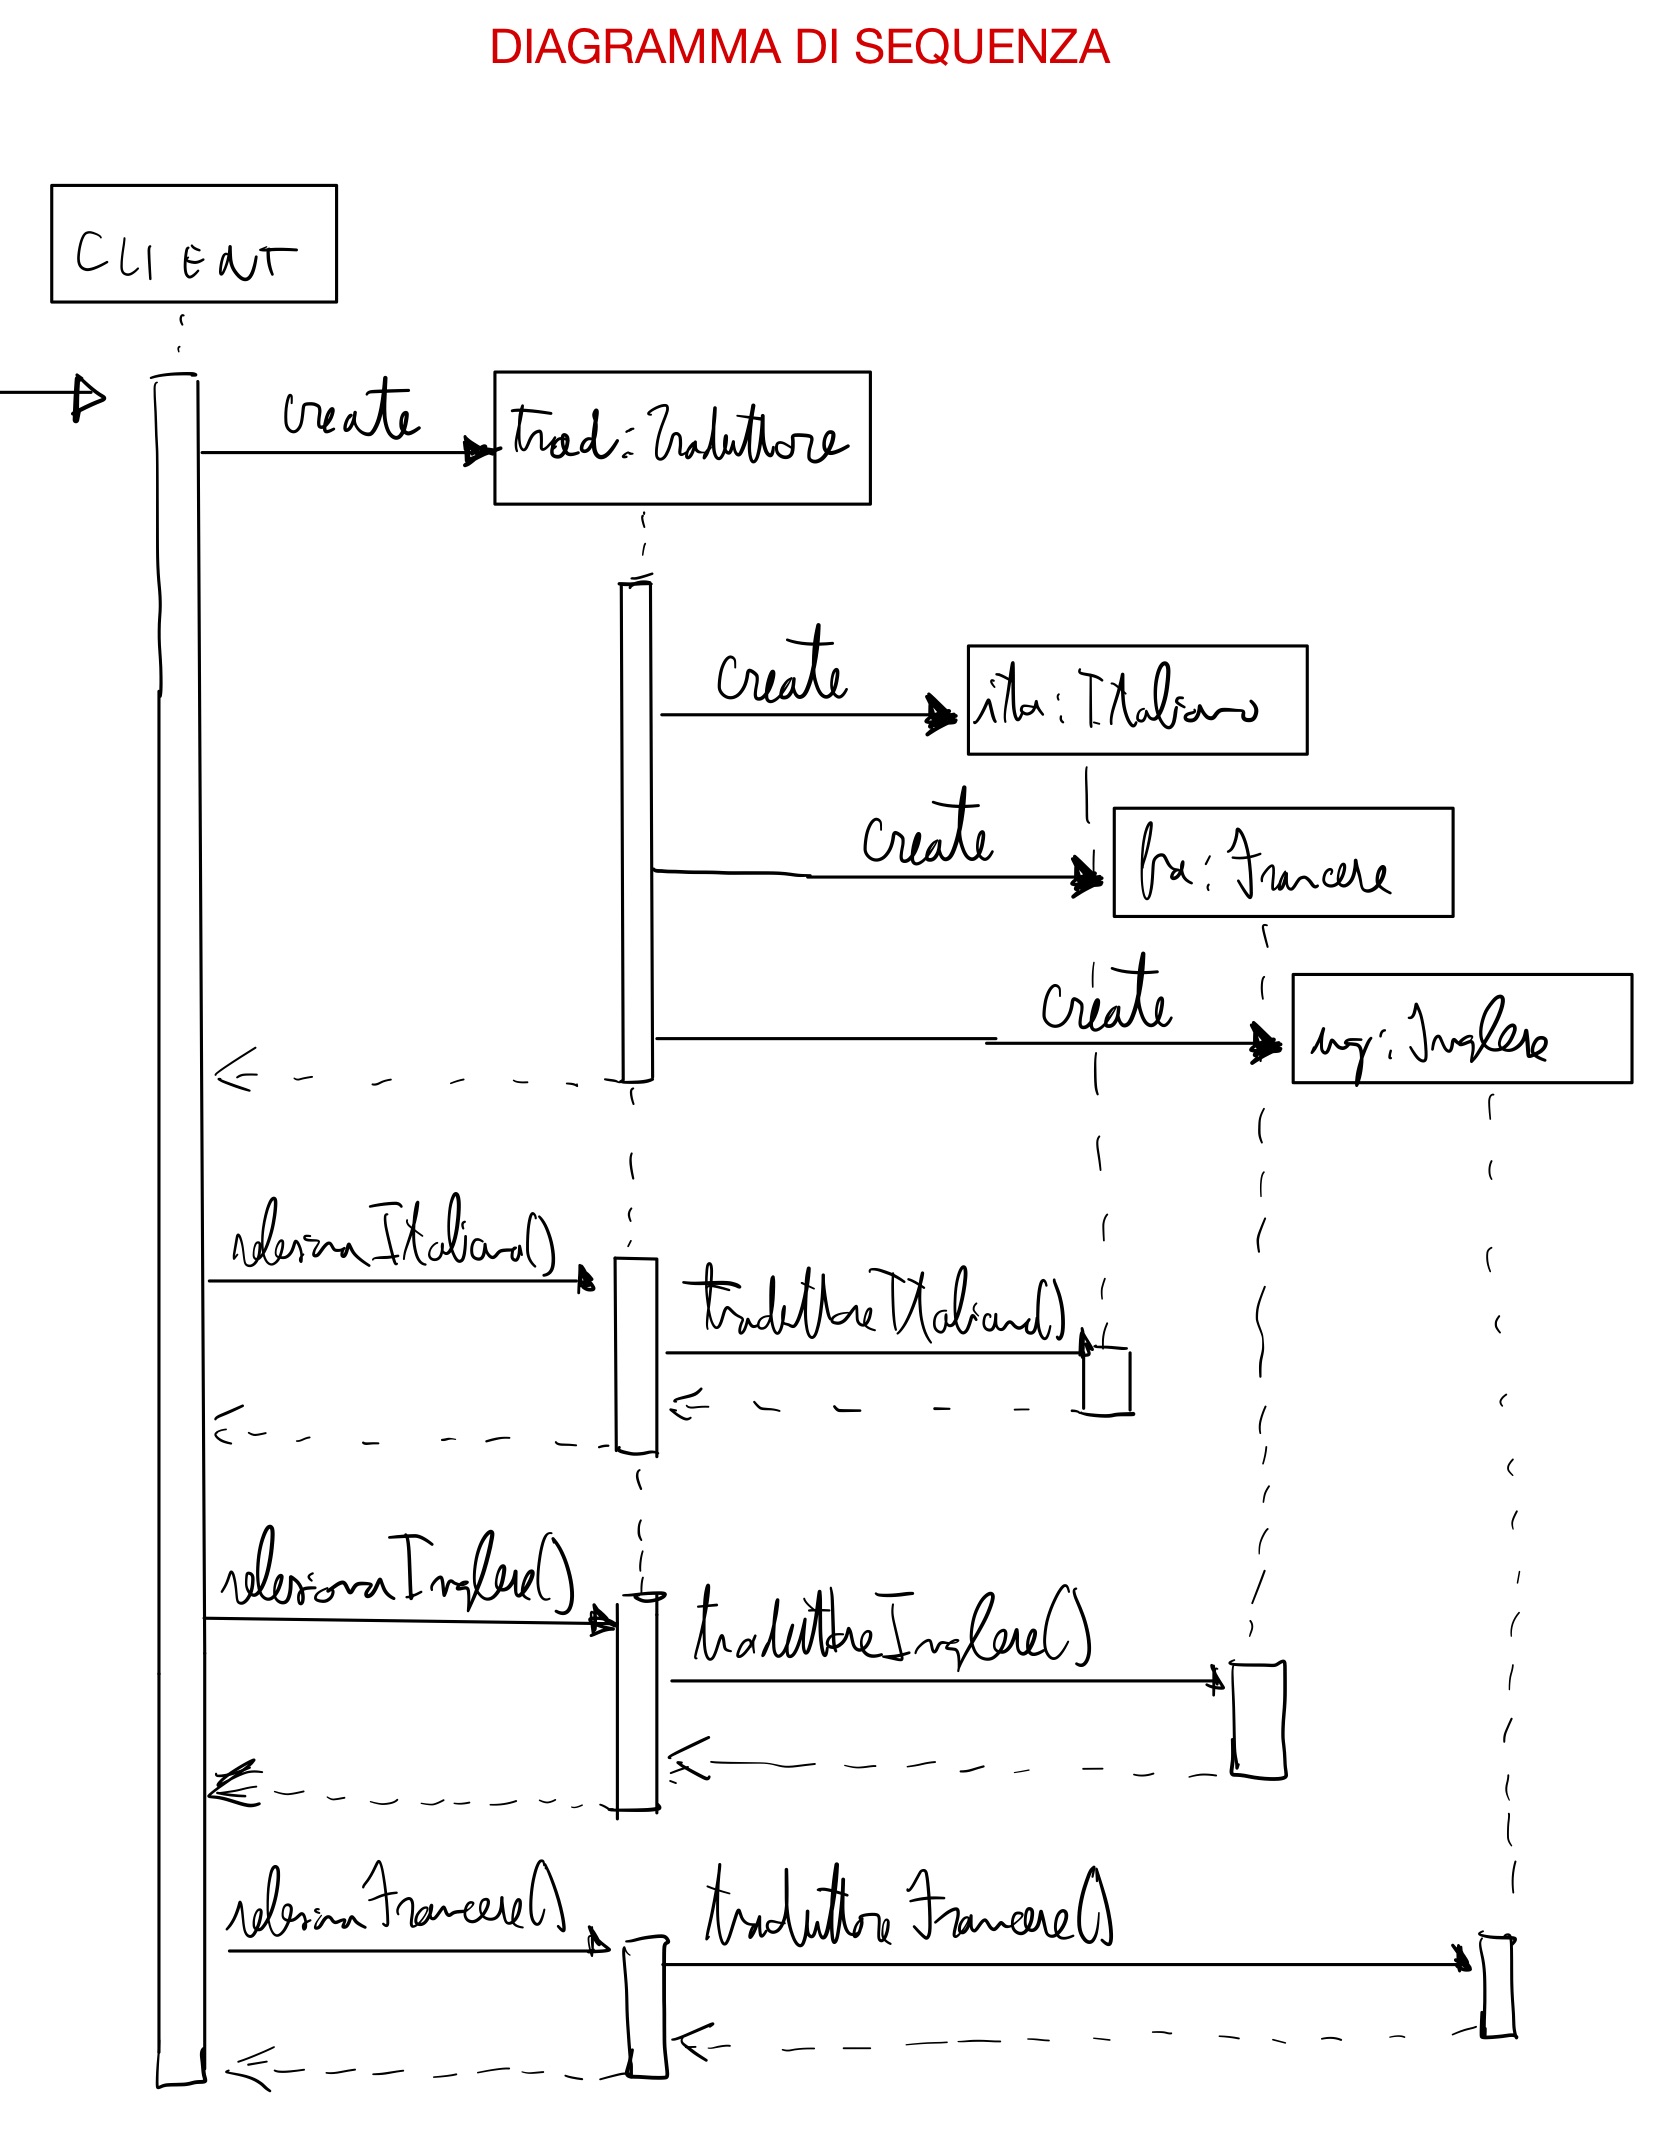 DIAGRAMMA DI SEQUENZA
CLIENT
create
trad: Traduttore
create
ita: Italiano
create
fra: Francese
create
ing: Inglese
selezionaItaliano()
traduttore Italiano()
selezionaInglese()
traduttoreInglese()
selezionaFrancese()
traduttore Francese()